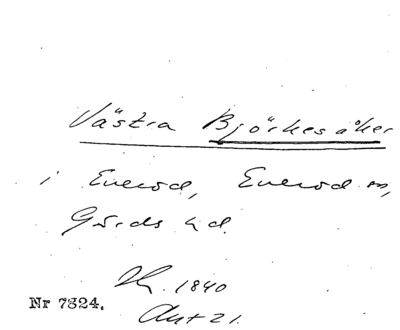 Västra Björkesåker
i Everöd, Everöd sn,
Gärds hd.
1840
Nr 7324.
Akt 21.